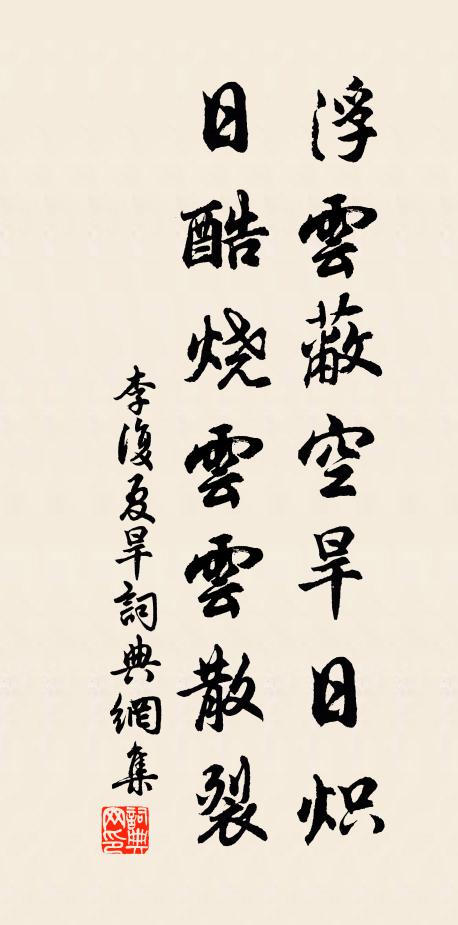 浮雲蔽空旱日炽
日酷烧雲雲散裂
李復夏旱詞典網集
詞典网印